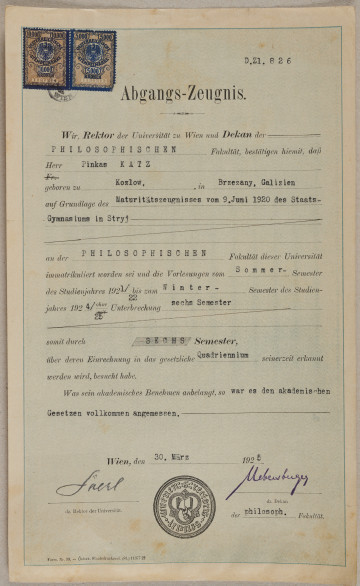 D.Zl. 826
Abgangs-Zeugnis.
Wir, Rektor der Universität zu Wien und Dekan der
PHILOSOPHISCHEN Fakultät, bestätigen hiemit, daß
Herr Pinkas KATZ
Fr.
geboren zu Kozlow, in Brzezany, Galizien
auf Grundlage des Maturitätszeugnisses vom 9.Juni 1920 des Staats-
Gymnasiums in Stryj
an der PHILOSOPHISCHEN Fakultät dieser Universität
immatrikuliert worden sei und die Vorlesungen vom Sommer- Semester
des Studienjahres 1921/22 bis zum Winter- Semester des Studien-
jahres 1924/25 ohne Unterbrechung sechs Semester
somit durch SECHS Semester,
über deren Einrechnung in das gesetzliche Quadriennium seinerzeit erkannt
werden wird, besucht habe.
Was sein akademisches Benehmen anbelangt, so war es den akademischen
Gesetzen vollkommen angemessen.
Wien, den 30. März 1925
dz. Rektor der Universität.
dz. Dekan
der philosoph. Fakultät.